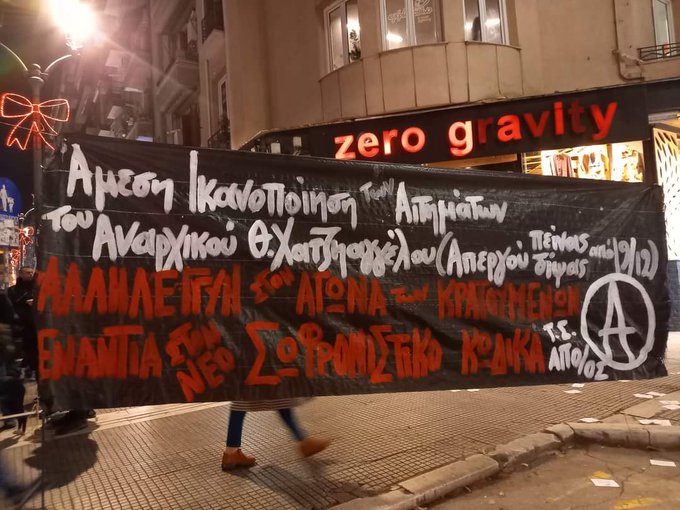 zero gravity
Αμεση Ικανοποίηση των Αιτημάτων
του Αναρχικού Θ.Χατζηαγγέλου (Απεργού πείνας δίψας από 9/12)
ΑΛΛΗΛΕΓΓΥΗ στον ΑΓΩΝΑ των ΚΡΑΤΟΥΜΕΝΩΝ
ΕΝΑΝΤΙΑ ΣΤΟΝ ΝΕΟ ΣΩΦΡΟΝΙΣΤΙΚΟ ΚΩΔΙΚΑ
Τ.Σ.
ΑΠΟ/ΟΣ
A